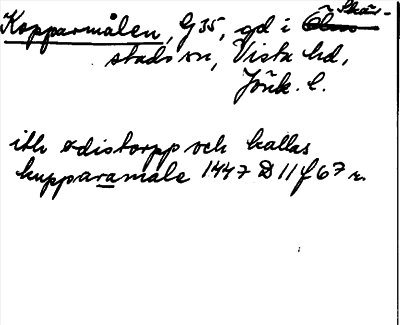 Kopparmålen, G35, gd i Skär-
stads sn, Vista hd,
Jönk. l.
ith ødistorpp och kallas
kupparamale 1447 D 11 f 67 r.